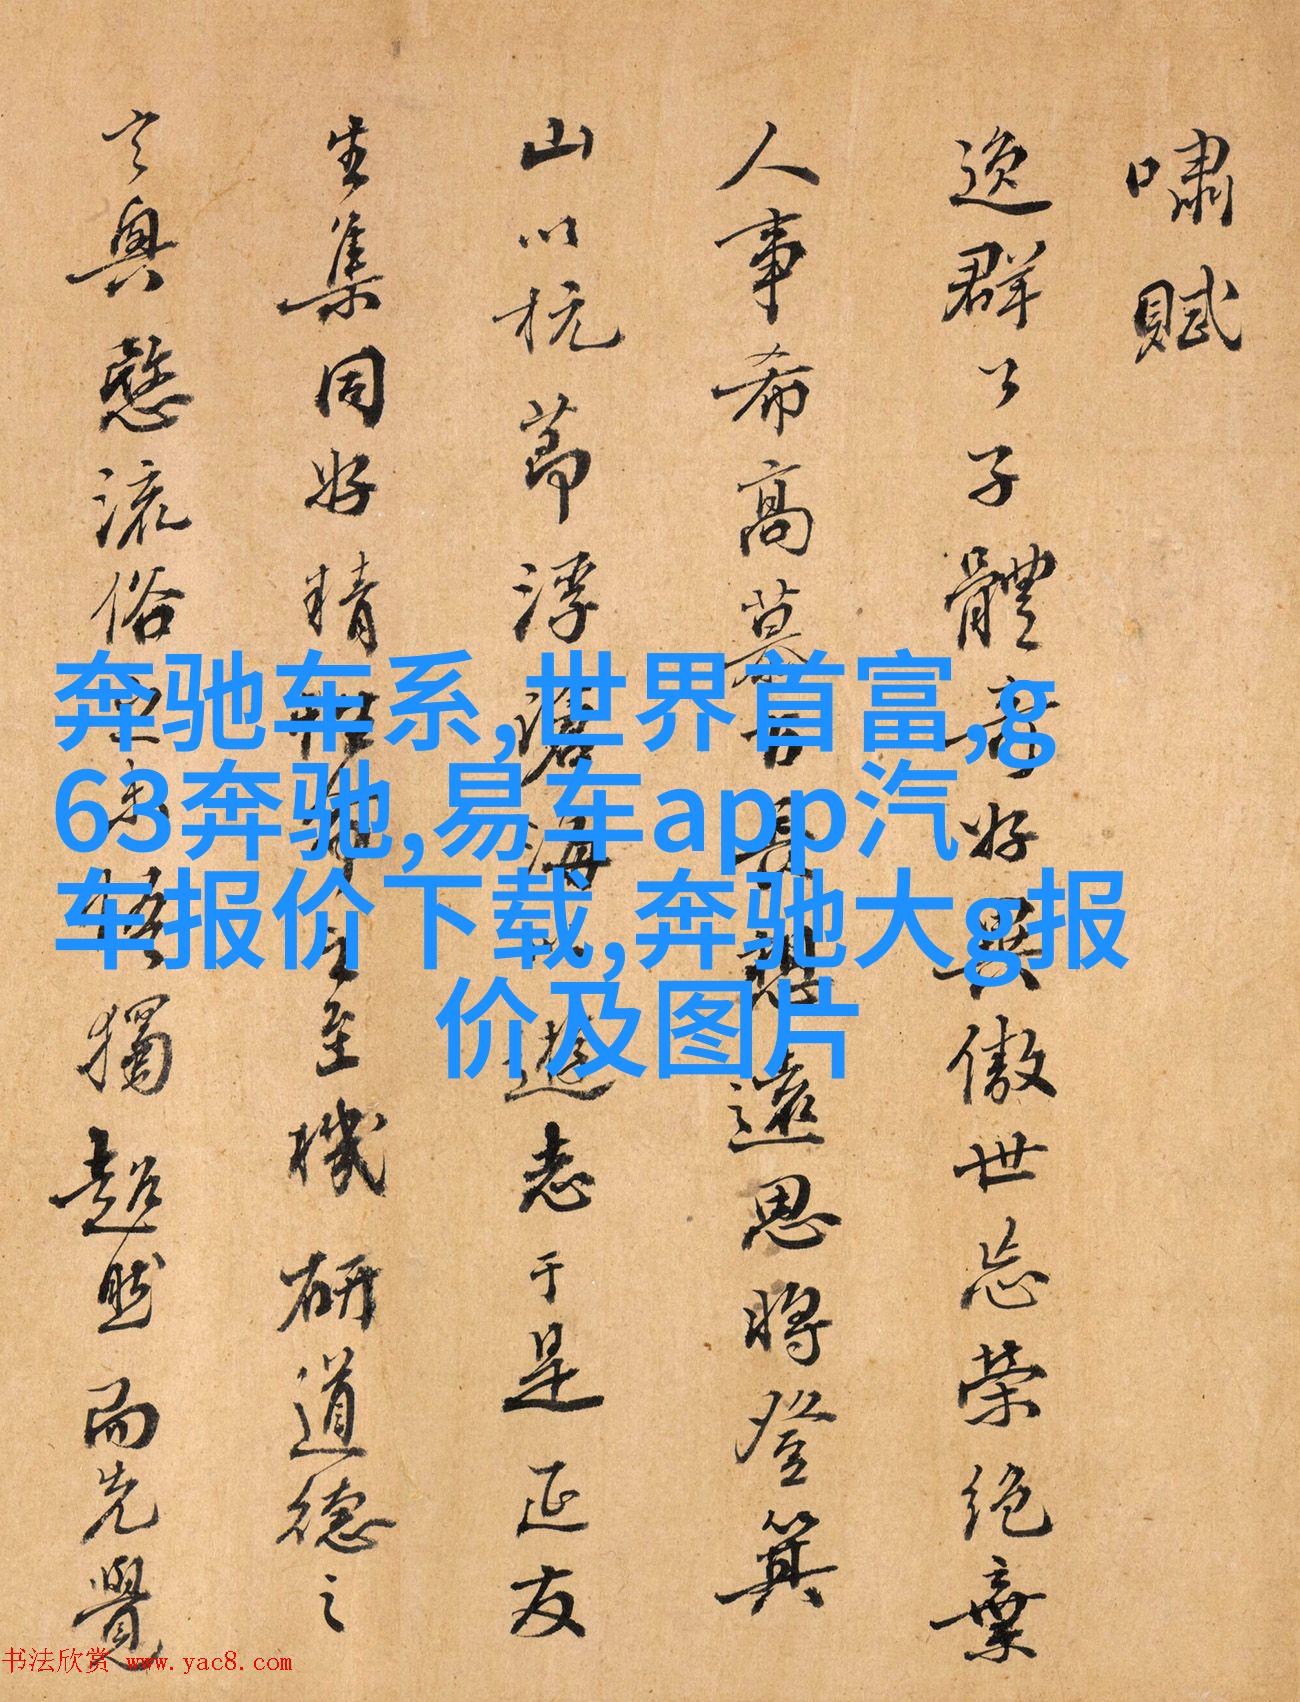 嘯賦
逸群公子體奇好異傲世忘榮絕棄
人事希高慕古長想遠思將登箕
山以杭節浮滄海以遊志于是延友
生集同好精性命之至機研道德之
玄奧愍流俗之未悟獨超然而先覺
奔驰车系,世界首富,g
63奔驰,易车app汽
车报价下载,奔驰大g报
价及图片
书法欣赏 www.yac8.com